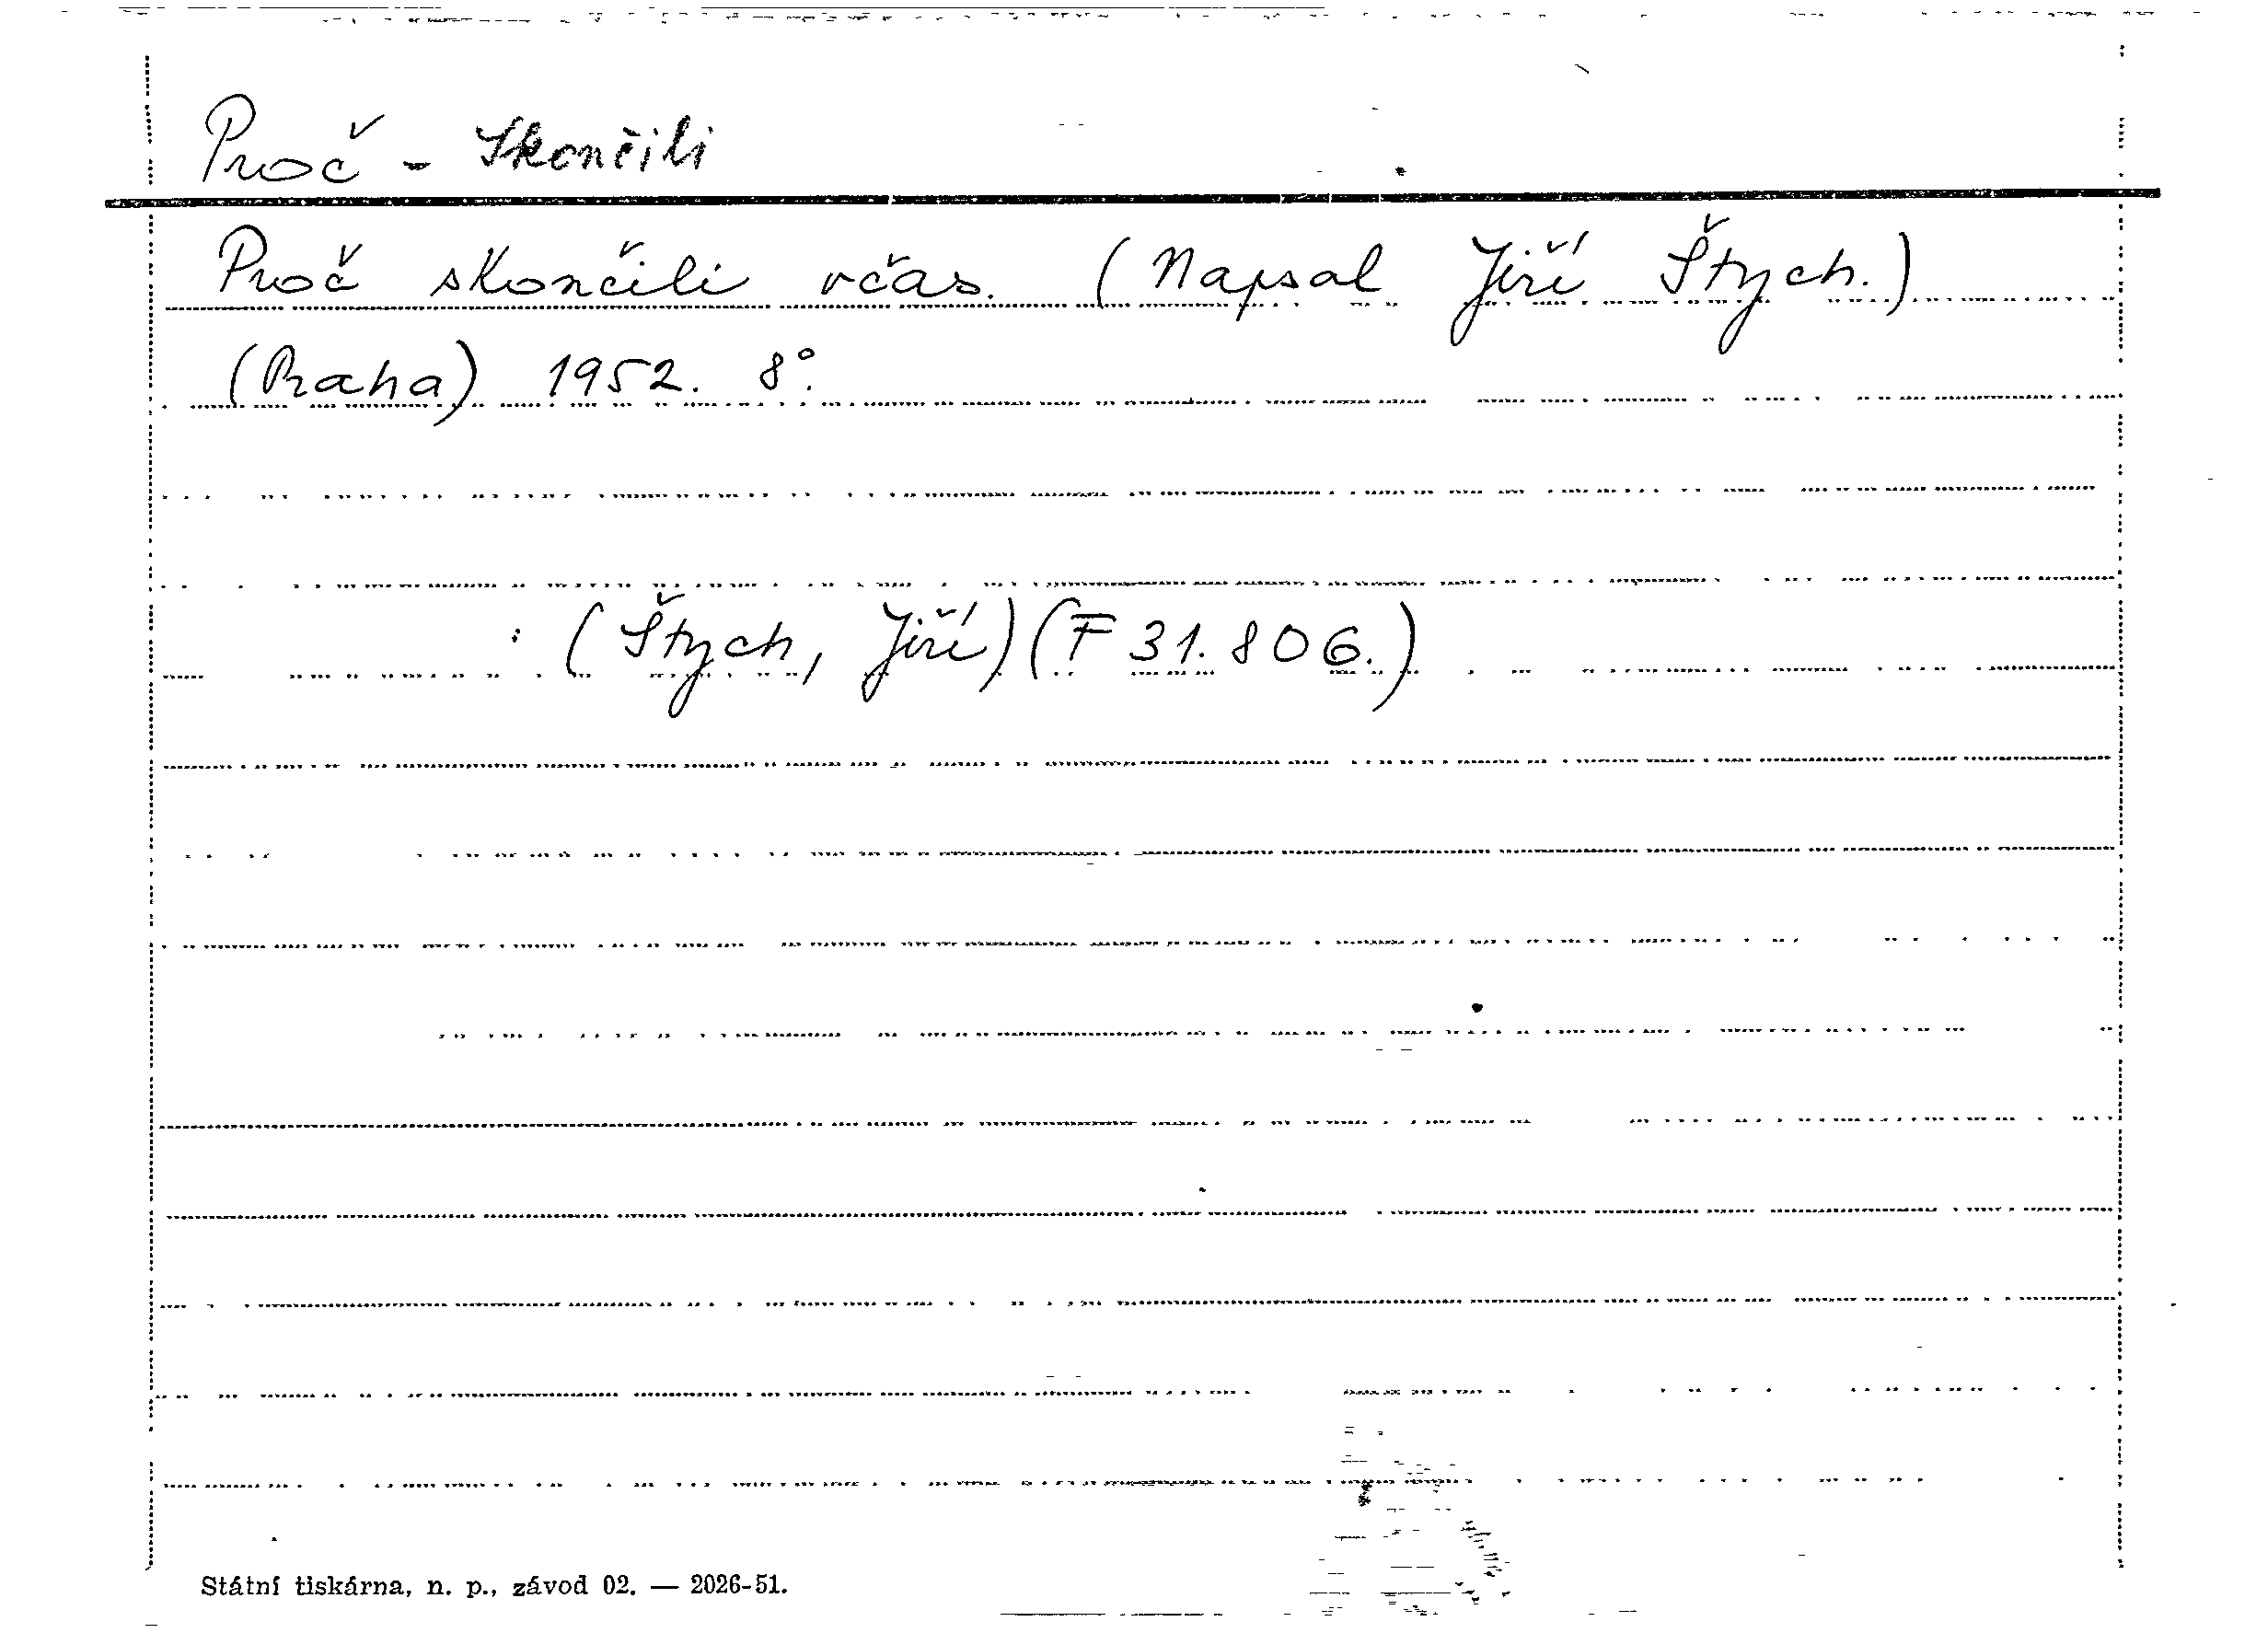 Proč - Skončili
Proč skončili včas. (Napsal Jiří Štych.)
(Praha) 1952. 8°.
(Štych, Jiří) (F 31.806.)
Státní tiskárna, n. p., závod 02. — 2026-51.